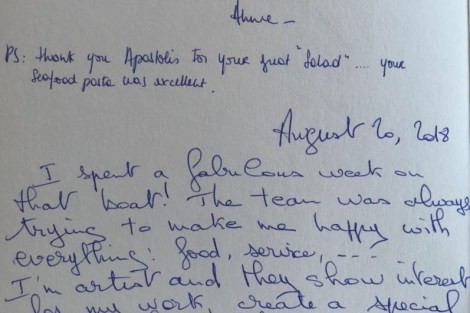 Anne -
PS: Thank you Apostolis for your great "Salad" .... your
Seafood pasta was excellent.
August 20, 2018
I spent a fabulous week on
that boat! The team was always
trying to make me happy with
everything: food, service, ----
I'm artist and they show interest
for my work, create a special